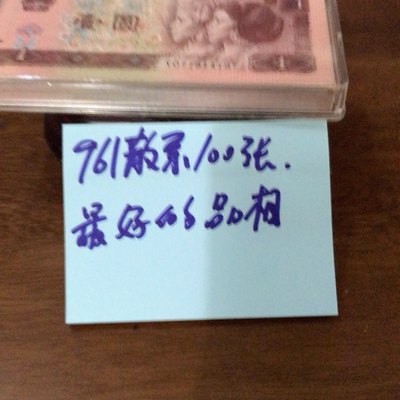 961散系100张.
最好的品相